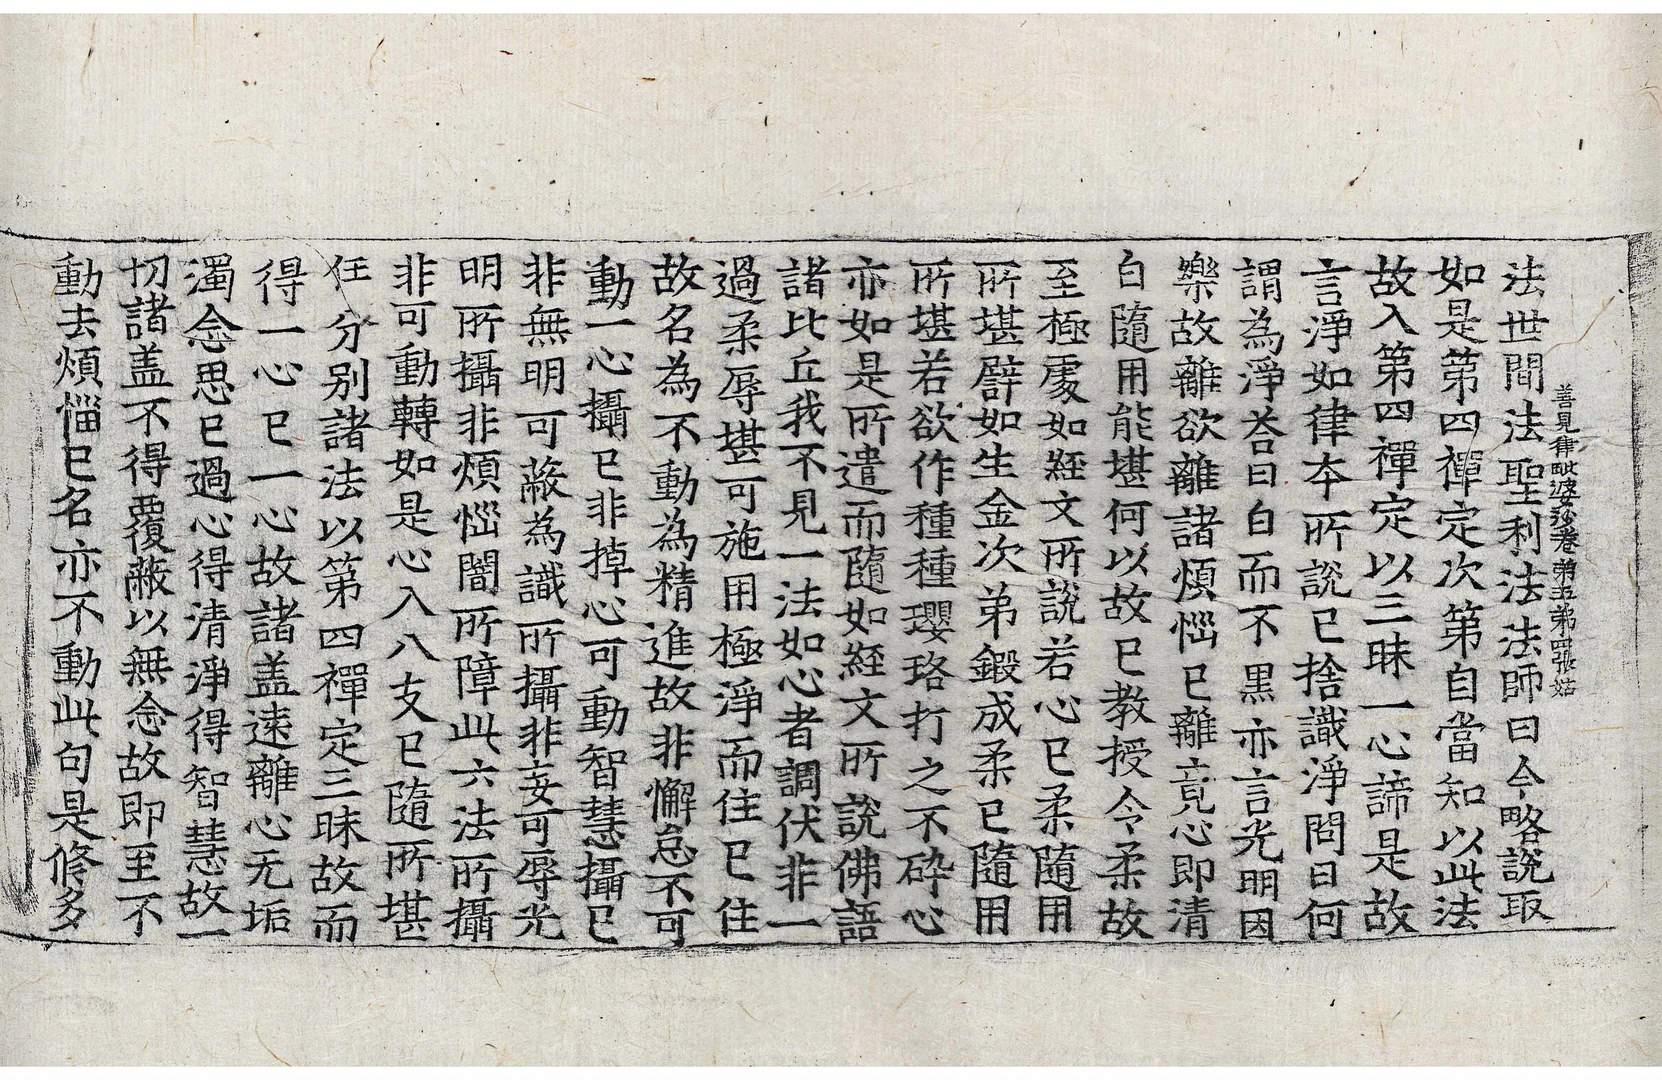 善見律毗婆沙卷第五第四張姑
法世間法聖利法法師曰今略說取
如是第四禪定次第自當知以此法
故入第四禪定以三昧一心諦是故
言淨如律本所說已捨識淨問曰何
謂為淨荅曰白而不黑亦言光明因
樂故離欲離諸煩惱已離竟心即清
白隨用能堪何以故已教授令柔故
至極處如経文所說若心已柔隨用
所堪譬如生金次第鍛成柔已隨用
所堪若欲作種種瓔珞打之不碎心
亦如是所遣而隨如経文所說佛語
諸比丘我不見一法如心者調伏非一
過柔辱堪可施用極淨而住已住
故名為不動為精進故非懈怠不可
動一心攝已非掉心可動智慧攝已
非無明可蔽為識所攝非妄可辱光
明所攝非煩惱闇所障此六法所攝
非可動轉如是心入八支已隨所堪
任分別諸法以第四禪定三昧故而
得一心已一心故諸盖遠離心无垢
濁念思已過心得清淨得智慧故一
切諸盖不得覆蔽以無念故即至不
動去煩惱已名亦不動此句是修多